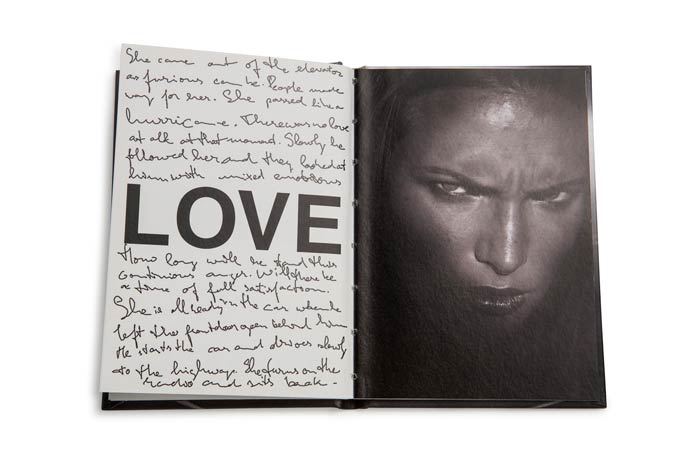 She came out of the elevator
as furious can be. People made
way for her. She passed like a
hurricane. There was no love
at all at that moment. Slowly he
followed her and they looked at
him with mixed emotions
LOVE
How long will he stand this
continious anger. Will there be
a time of full satisfaction.
She is already in the car when he
left the frontdoor open behind him
He starts the car and drives slowly
to the highway. She turns on the
radio and sits back -